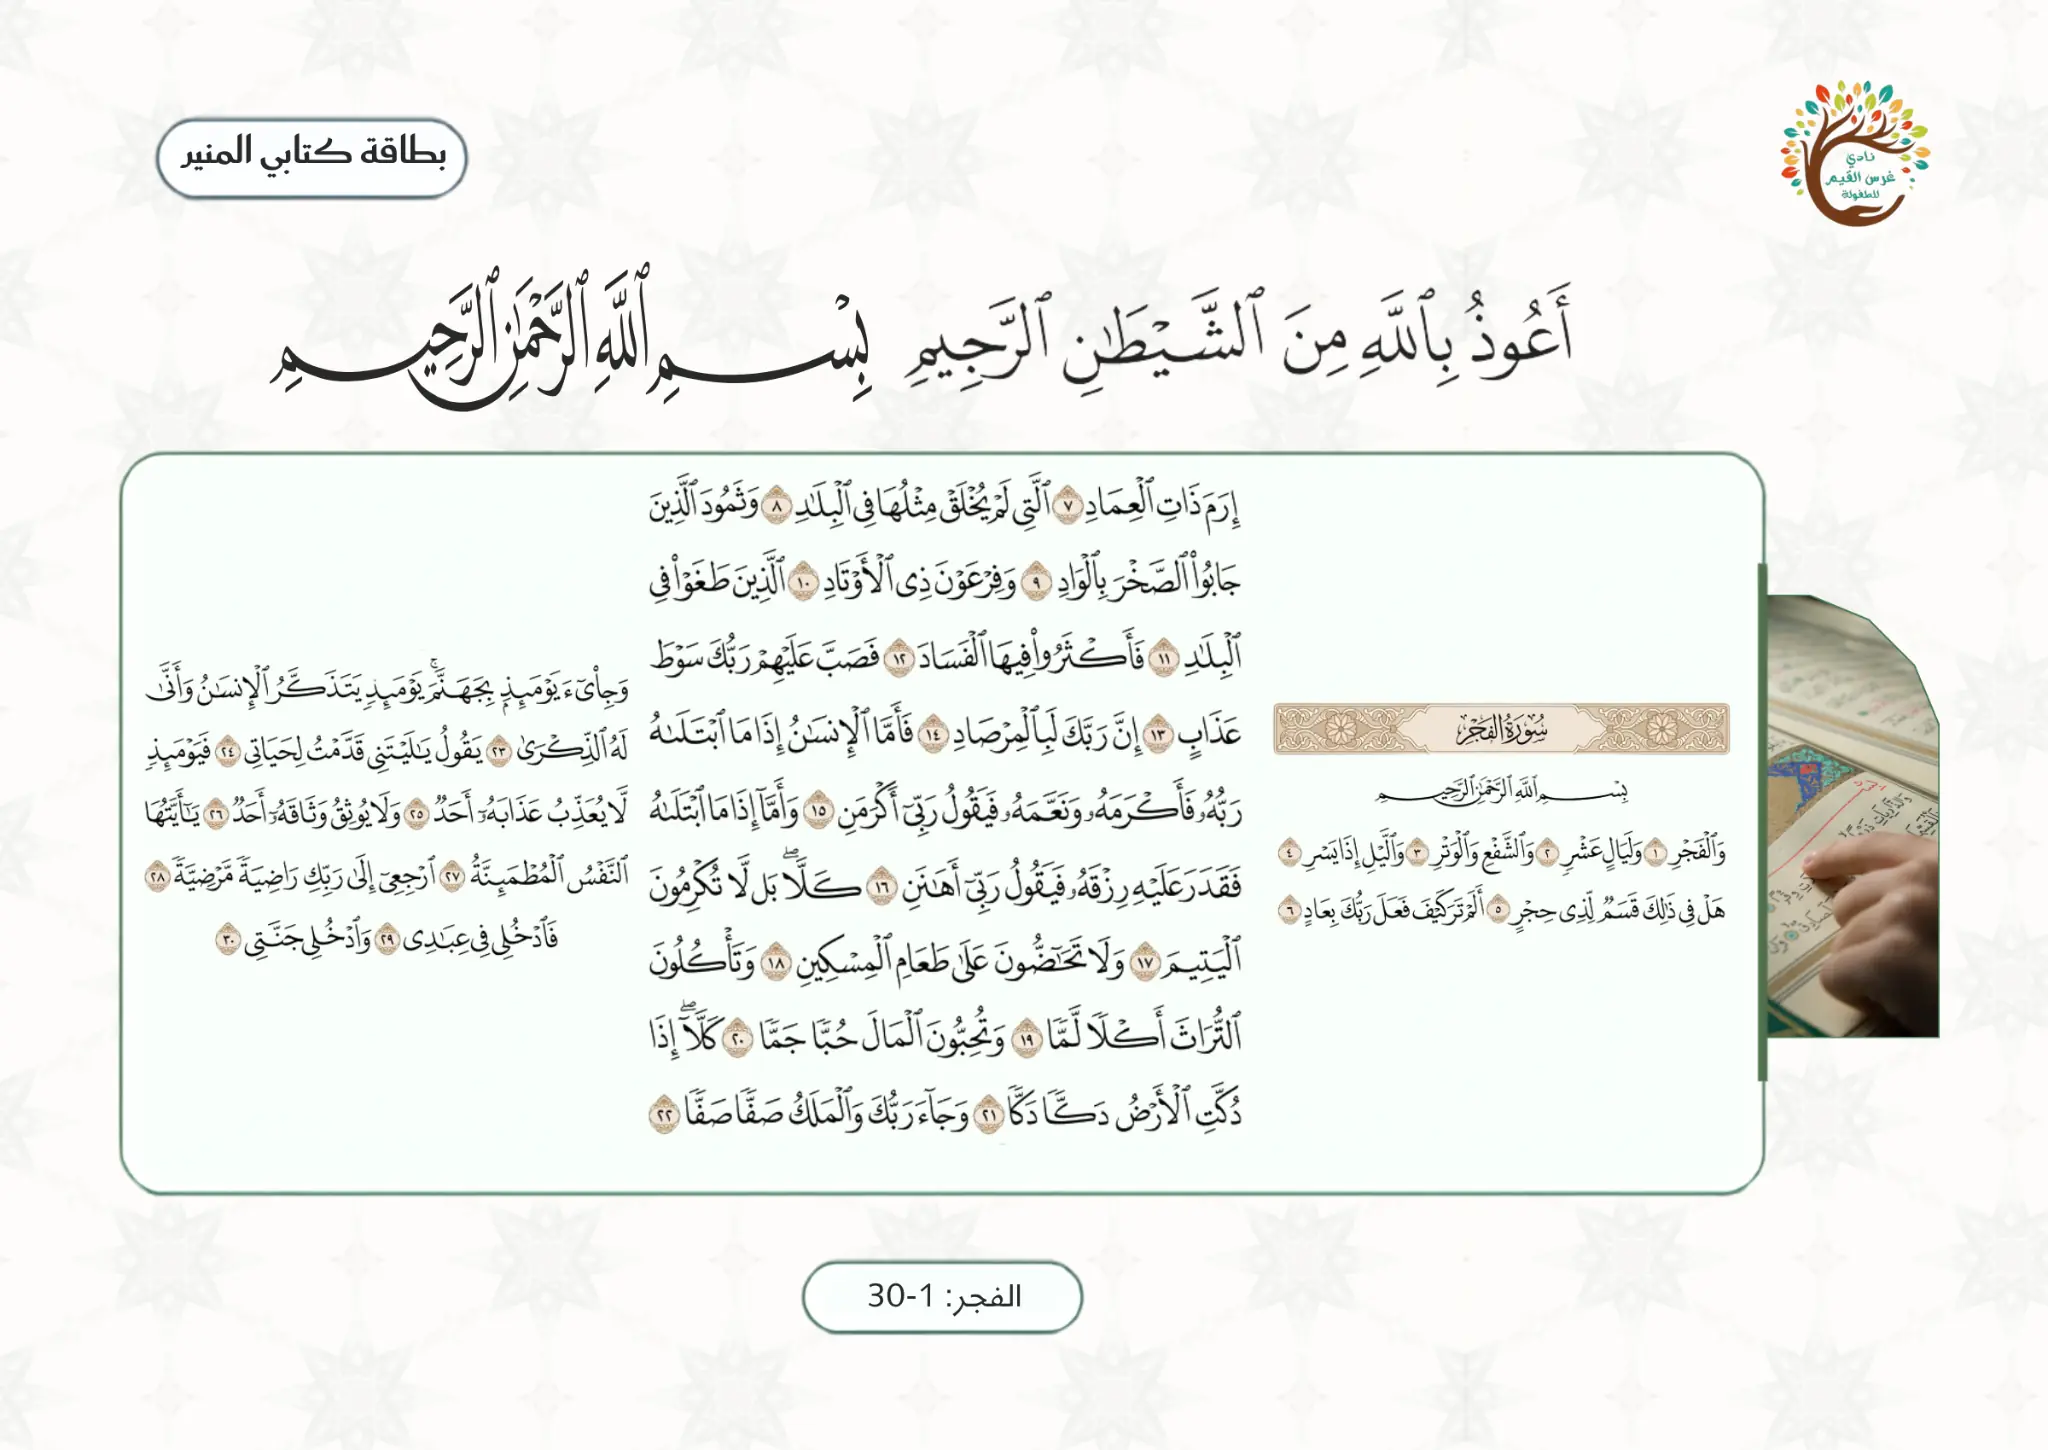 نادي
غرس القيم
للطفولة
بطاقة كتابي المنير
أَعُوذُ بِٱللَّهِ مِنَ ٱلشَّيْطَٰنِ ٱلرَّجِيمِ بِسْمِ ٱللَّهِ ٱلرَّحْمَٰنِ ٱلرَّحِيمِ
سُورَةُ الفَجْرِ
بِسْمِ ٱللَّهِ ٱلرَّحْمَٰنِ ٱلرَّحِيمِ
وَٱلْفَجْرِ ١ وَلَيَالٍ عَشْرٖ ٢ وَٱلشَّفْعِ وَٱلْوَتْرِ ٣ وَٱلَّيْلِ إِذَا يَسْرِ ٤
هَلْ فِي ذَٰلِكَ قَسَمٞ لِّذِي حِجْرٍ ٥ أَلَمْ تَرَ كَيْفَ فَعَلَ رَبُّكَ بِعَادٍ ٦
إِرَمَ ذَاتِ ٱلْعِمَادِ ٧ ٱلَّتِي لَمْ يُخْلَقْ مِثْلُهَا فِي ٱلْبِلَٰدِ ٨ وَثَمُودَ ٱلَّذِينَ
جَابُوا۟ ٱلصَّخْرَ بِٱلْوَادِ ٩ وَفِرْعَوْنَ ذِي ٱلْأَوْتَادِ ١٠ ٱلَّذِينَ طَغَوْا۟ فِي
ٱلْبِلَٰدِ ١١ فَأَكْثَرُوا۟ فِيهَا ٱلْفَسَادَ ١٢ فَصَبَّ عَلَيْهِمْ رَبُّكَ سَوْطَ
عَذَابٍ ١٣ إِنَّ رَبَّكَ لَبِٱلْمِرْصَادِ ١٤ فَأَمَّا ٱلْإِنسَٰنُ إِذَا مَا ٱبْتَلَىٰهُ
رَبُّهُۥ فَأَكْرَمَهُۥ وَنَعَّمَهُۥ فَيَقُولُ رَبِّيٓ أَكْرَمَنِ ١٥ وَأَمَّآ إِذَا مَا ٱبْتَلَىٰهُ
فَقَدَرَ عَلَيْهِ رِزْقَهُۥ فَيَقُولُ رَبِّيٓ أَهَٰنَنِ ١٦ كَلَّاۖ بَل لَّا تُكْرِمُونَ
ٱلْيَتِيمَ ١٧ وَلَا تَحَٰٓضُّونَ عَلَىٰ طَعَامِ ٱلْمِسْكِينِ ١٨ وَتَأْكُلُونَ
ٱلتُّرَاثَ أَكْلٗا لَّمّٗا ١٩ وَتُحِبُّونَ ٱلْمَالَ حُبّٗا جَمّٗا ٢٠ كَلَّآۖ إِذَا
دُكَّتِ ٱلْأَرْضُ دَكّٗا دَكّٗا ٢١ وَجَآءَ رَبُّكَ وَٱلْمَلَكُ صَفّٗا صَفّٗا ٢٢
وَجِا۟يٓءَ يَوْمَئِذِۭ بِجَهَنَّمَۚ يَوْمَئِذٖ يَتَذَكَّرُ ٱلْإِنسَٰنُ وَأَنَّىٰ
لَهُ ٱلذِّكْرَىٰ ٢٣ يَقُولُ يَٰلَيْتَنِي قَدَّمْتُ لِحَيَاتِي ٢٤ فَيَوْمَئِذٖ
لَّا يُعَذِّبُ عَذَابَهُۥٓ أَحَدٞ ٢٥ وَلَا يُوثِقُ وَثَاقَهُۥٓ أَحَدٞ ٢٦ يَٰٓأَيَّتُهَا
ٱلنَّفْسُ ٱلْمُطْمَئِنَّةُ ٢٧ ٱرْجِعِيٓ إِلَىٰ رَبِّكِ رَاضِيَةٗ مَّرْضِيَّةٗ ٢٨
فَٱدْخُلِي فِي عِبَٰدِي ٢٩ وَٱدْخُلِي جَنَّتِي ٣٠
الفجر: 1-30